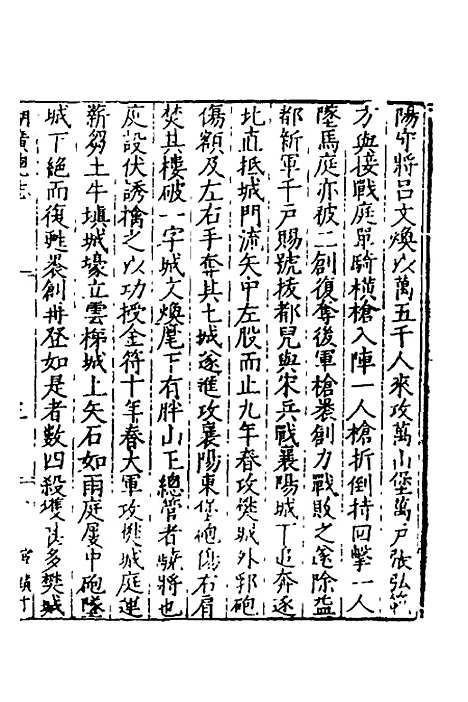 陽守將呂文煥以萬五千人來攻萬山堡萬户張弘範
方與接戰庭單騎橫槍入陣一人槍折倒持回擊一人
墜馬庭亦被二創復奪後軍槍裹創力戰敗之遂除益
都新軍千戸賜號拔都兒與宋兵戰襄陽城下追奔逐
北直抵城門流矢中左股而止九年春攻樊城外郛砲
傷額及左右手奪其七城遂進攻襄陽東堡砲傷右肩
焚其樓破一字城文煥麾下有胖山王總管者驍將也
庭設伏誘擒之以功授金符十年春大軍攻樊城庭運
薪芻土牛塡城壕立雲梯城上矢石如雨庭屢中砲墜
城下絕而復甦裹創再登如是者數四殺獲甚多樊城